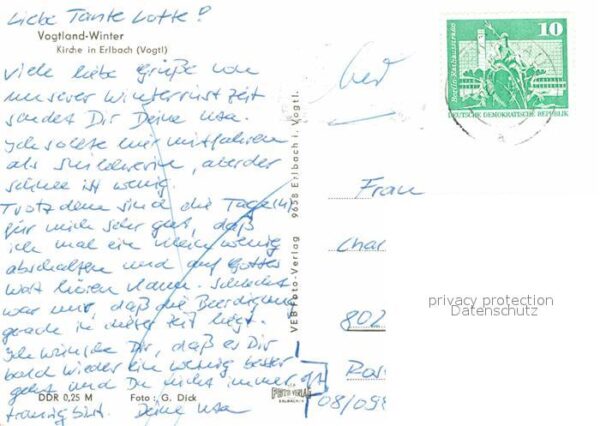 Liebe Tante Lotte!
Vogtland-Winter
Kirche in Erlbach (Vogtl)
Viele liebe Grüße von
unserer Winterrüstzeit
sendet Dir Deine Uta.
Ich sollte nur mitfahren
als Skilehrerin, aber der
Schnee ist wenig.
Trotzdem sind die Tage (4)
für mich sehr gut, daß
ich mal ein klein wenig
abschalten und auf Gottes
Wort hören kann. Schade
war nur, daß die Beerdigung
gerade in dieser Zeit liegt.
Ich wünsche Dir, daß es Dir
bald wieder ein wenig besser
geht und Du nicht immer
traurig bist. Deine Uta
DDR 0,25 M Foto: G. Dick
VEB Foto-Verlag 9658 Erlbach i. Vogtl.
FOTO VERLAG
ERLBACH V.
08/09
10
Berlin-Rathausstraße
DEUTSCHE DEMOKRATISCHE REPUBLIK
Frau
Char
802
privacy protection
Datenschutz